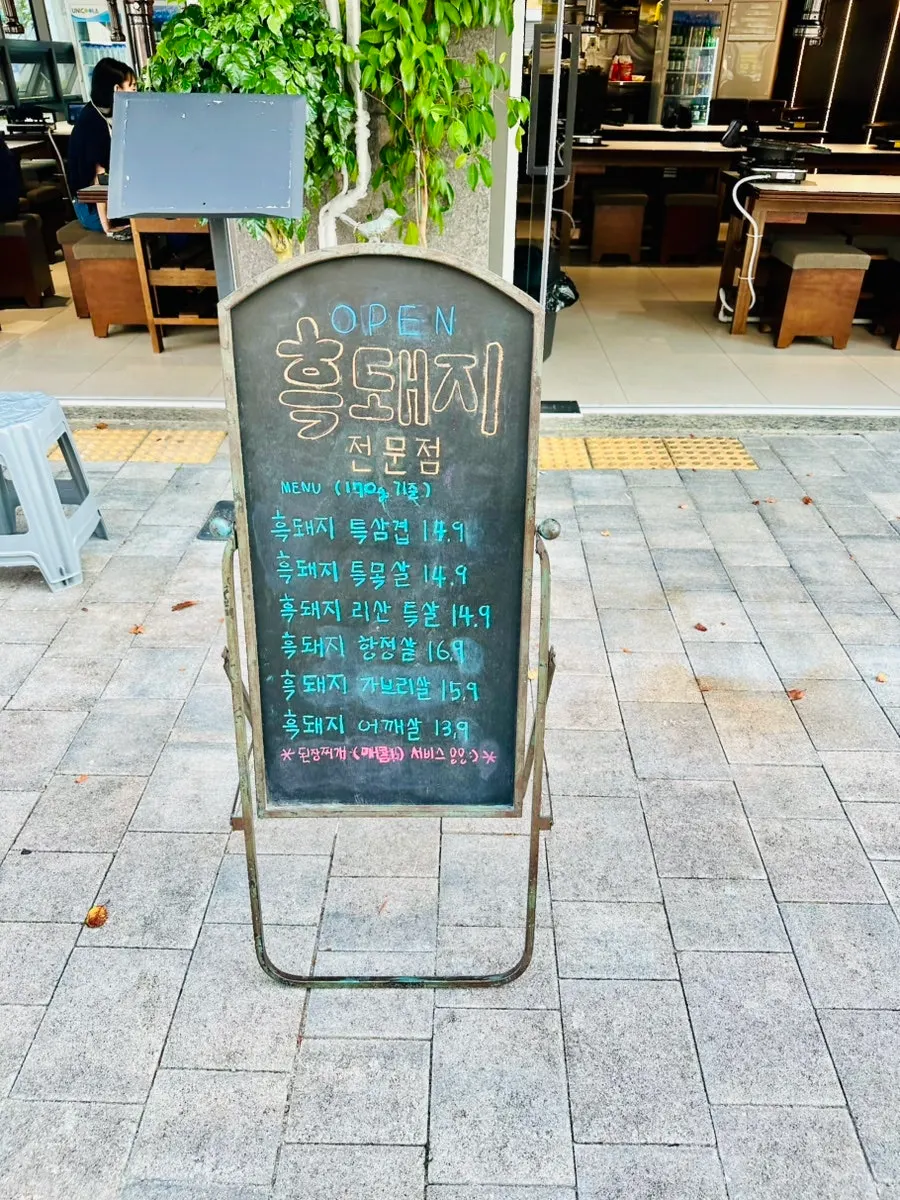 OPEN
흑돼지
전문점
MENU (170g 기준)
흑돼지 특삼겹 14.9
흑돼지 특목살 14.9
흑돼지 리산 특살 14.9
흑돼지 항정살 16.9
흑돼지 가브리살 15.9
흑돼지 어깨살 13.9
*된장찌개 서비스 :) *